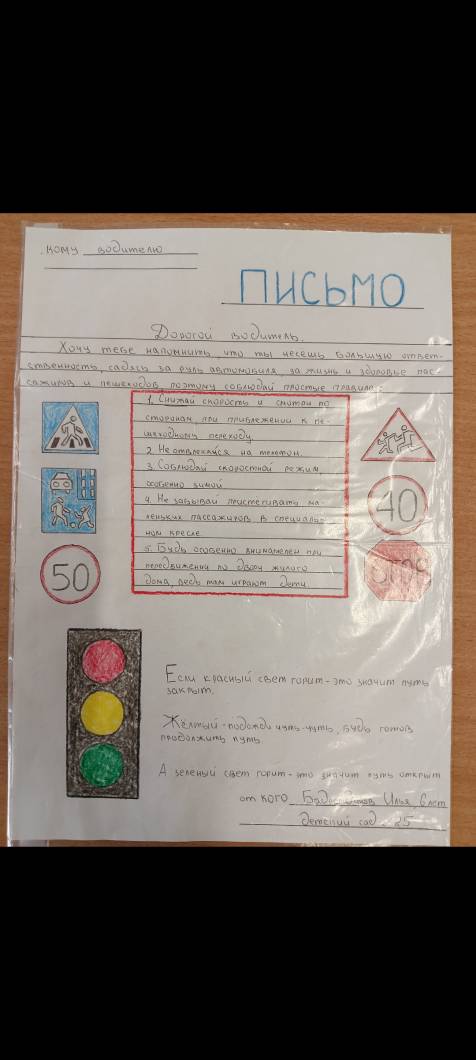 кому водителю
ПИСЬМО
Дорогой водитель.
Хочу тебе напомнить, что ты несешь большую ответ-
ственность, садясь за руль автомобиля, за жизнь и здоровье пас-
сажиров и пешеходов, поэтому соблюдай простые правила:
1. Снижай скорость и смотри по
сторонам, при приближении к пе-
шеходному переходу.
2. Не отвлекайся на телефон.
3. Соблюдай скоростной режим,
особенно зимой.
4. Не забывай пристегивать ма-
леньких пассажиров в специаль-
ном кресле.
5. Будь особенно внимателен при
передвижении по двору жилого
дома, ведь там играют дети.
50
40
STOP
Если красный свет горит - это значит путь
закрыт.
Жёлтый - подожди чуть-чуть, будь готов
продолжить путь.
А зеленый свет горит - это значит путь открыт
от кого Илья 6 лет
детский сад 25